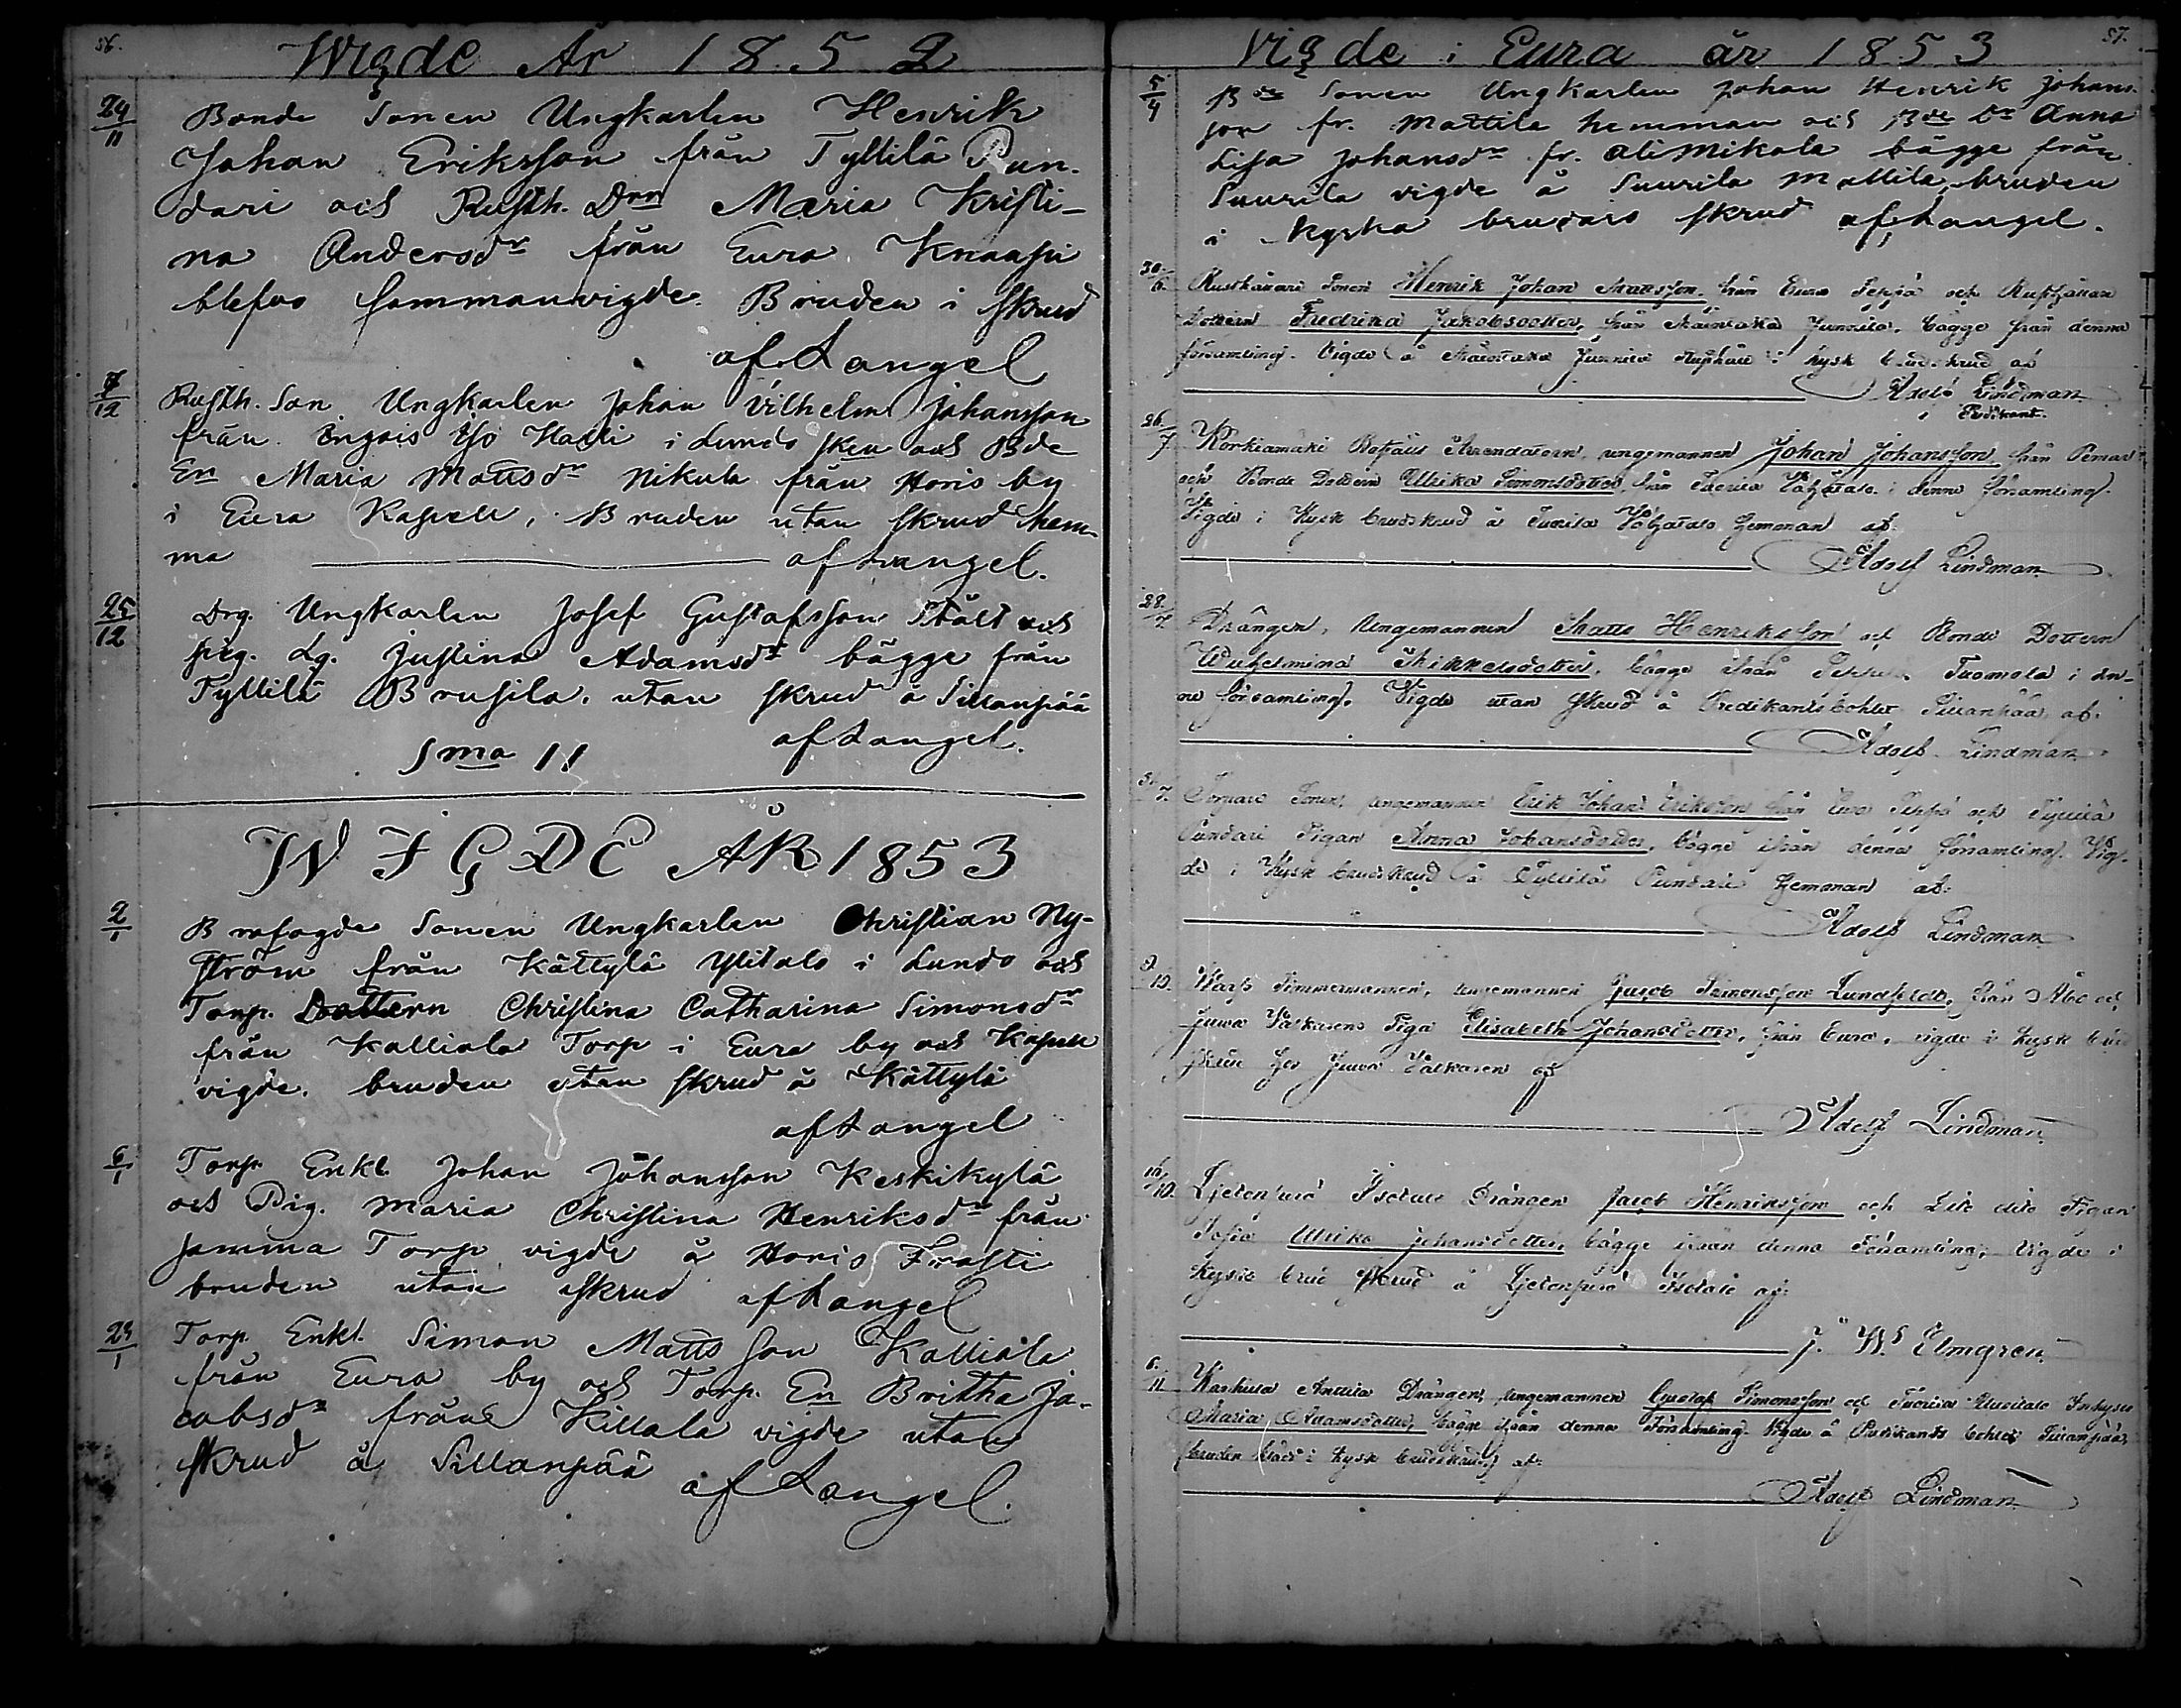 56.
Wigde År 1852
24/11 Bonde Sonen Ungkarlen Henrik
Johan Eriksson från Tyllilä Pun-
dari och Rusth. Drn Maria Kristi-
na Andersdr från Eura Knaapi
blefvo sammanvigde. Bruden i skrud
af Langel
7/12 Rusth. Son Ungkarlen Johan Vilhelm Johansson
från Engois Yso Halli i Lundo Skn och Bde
En Maria Mattsdr Nikula från Horis by
i Eura Kapell, Bruden utan skrud hem-
ma af Langel.
25/12 Drg. Ungkarlen Josef Gustafsson Stålt och
pig. Lg. Justina Adamsdr bägge från
Tyllilä Brusila. utan skrud å Sillanpää
af Langel.
Sma 11
WIGDE ÅR 1853
2/1 Brofogde Sonen Ungkarlen Christian Ny-
ström från Kättylä Ylitalo i Lundo och
Torp. Dottern Christina Catharina Simonsdr
från Kalliala Torp i Eura by och Kapell
vigde. bruden utan skrud å Kättylä
af Langel
6/1 Torp. Enkl. Johan Johansson Keskikylä
och Pig. Maria Christina Henriksdr från
samma Torp vigde å Horis Frasti
bruden utan skrud af Langel
24/1 Torp. Enkl. Simon Matts son Kalliala
från Eura by och Torp. En Britha Ja-
cobsdr från Killala vigde utan
skrud å Sillanpää af Langel.
57.
Vigde i Eura år 1853
5/4 Bde Sonen Ungkarlen Johan Henrik Johans-
son fr. Mattila hemman och Bde Dr Anna
Lisa Johansdr fr. Ali Mikola bägge från
Suurila vigde å Suurila Mattila, bruden
i kyska brudars skrud af Langel.
30/6. Rusthållare Sonen Henrik Johan Mattsson, från Eura Seppä och Rusthållare
Dottern Fredrika Jakobsdotter, från Junnila, bägge från denna
församling. Vigde å Junnila Rusthåll i kysk brudskrud af
Adolf Lindman
Predikant.
26/7. Korkiamäki Bohäll Arrendatorn, ungemannen Johan Johansson, från Pemar
och Bonde Dottern Ulrika Simonsdotter, från i denna församling.
Vigde i Kysk brudskrud å hemman af:
Adolf Lindman
28/7. Drängen, Ungemannen Matts Henriksson och Bonde Dottern
Wilhelmina Mikkelsdotter, bägge ifrån Tuomola i den-
na församling. Vigde utan skrud å Predikantsbohlet Sillanpää af:
Adolf Lindman
7. Sonen, ungemannen Erik Johan Eriksson från Eura Seppä och Tyllilä
Pundari Pigan Anna Johansdotter, bägge ifrån denna församling. Vig-
de i Kysk brudskrud å Tyllilä Pundari hemman af:
Adolf Lindman
9/10. Timmermannen, ungemannen Jacob Simonsson Lundfeldt, från Åbo och
Juva Piga Elisabeth Johansdotter, från Eura, vigde i kysk brud
skrud hos Juva af
Adolf Lindman
16/10. Isotalo Drängen Jacob Henriksson och Dito dito Pigan
Sofia Ulrika Johansdotter, bägge ifrån denna Församling, Vigde i
kysk brud skrud å Isotalo af:
J. Wd Elmgren
6./11. Anttila Drängen, ungemannen Gustaf Simonsson och
Maria Adamsdotter, bägge ifrån denna Församling. Vigde å Predikants bohlet Sillanpää,
(bruden klädd i kysk brudskrud) af:
Adolf Lindman